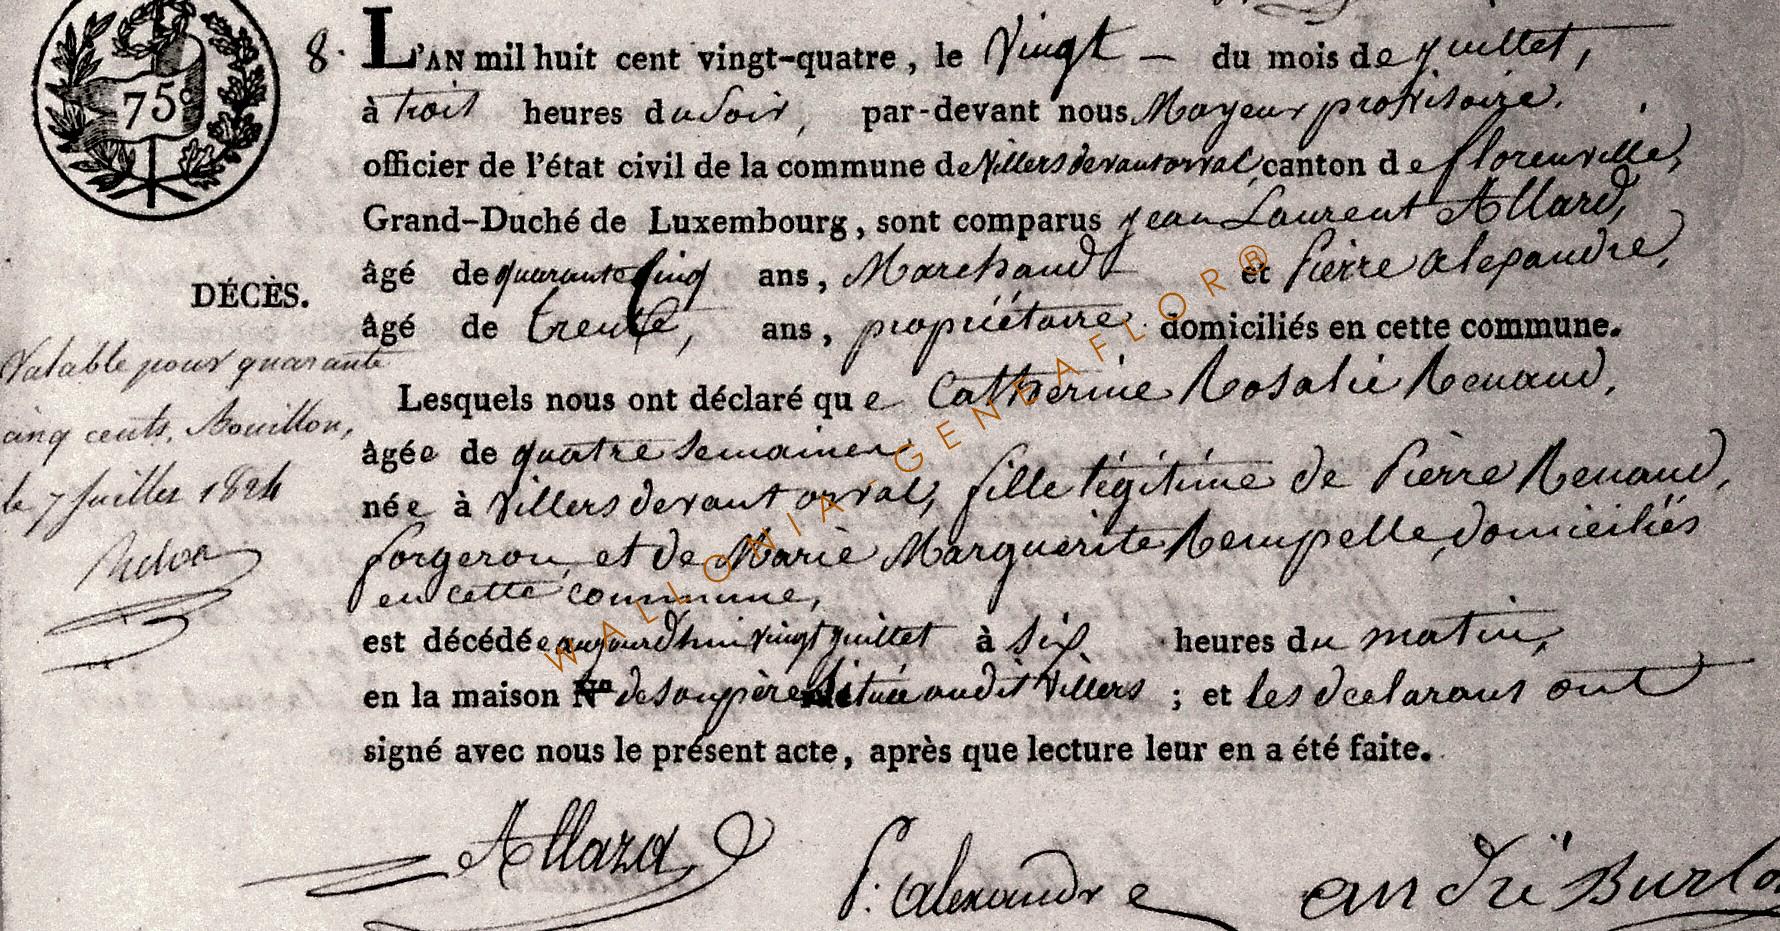 75c
8. L'AN mil huit cent vingt-quatre, le Vingt — du mois de juillet,
à trois heures du Soir, par-devant nous Mayeur provisoire.
officier de l'état civil de la commune de Villers devant orval, canton de florenville,
Grand-Duché de Luxembourg, sont comparus jean Laurent Allard,
âgé de quarante Cinq ans, Marchand et Pierre alexandre,
âgé de trente, ans, propriétaire domiciliés en cette commune.
DÉCÈS.
Valable pour quarante
cinq cents. Bouillon,
le 7 Juillet 1824
Lesquels nous ont déclaré que Catherine Rosalie Renaud,
âgée de quatre semaines
née à Villers devant orval, fille légitime de Pierre Renaud,
forgeron, et de Marie Marguerite Rempelle, domiciliés
en cette commune,
est décédée aujourdhui vingt juillet à six heures du matin,
en la maison N.o de son père située audit Villers ; et les declarans ont
signé avec nous le présent acte, après que lecture leur en a été faite.
Allard
P. alexandre
andré Burlo
WALLONIA-GENEAFLOR®